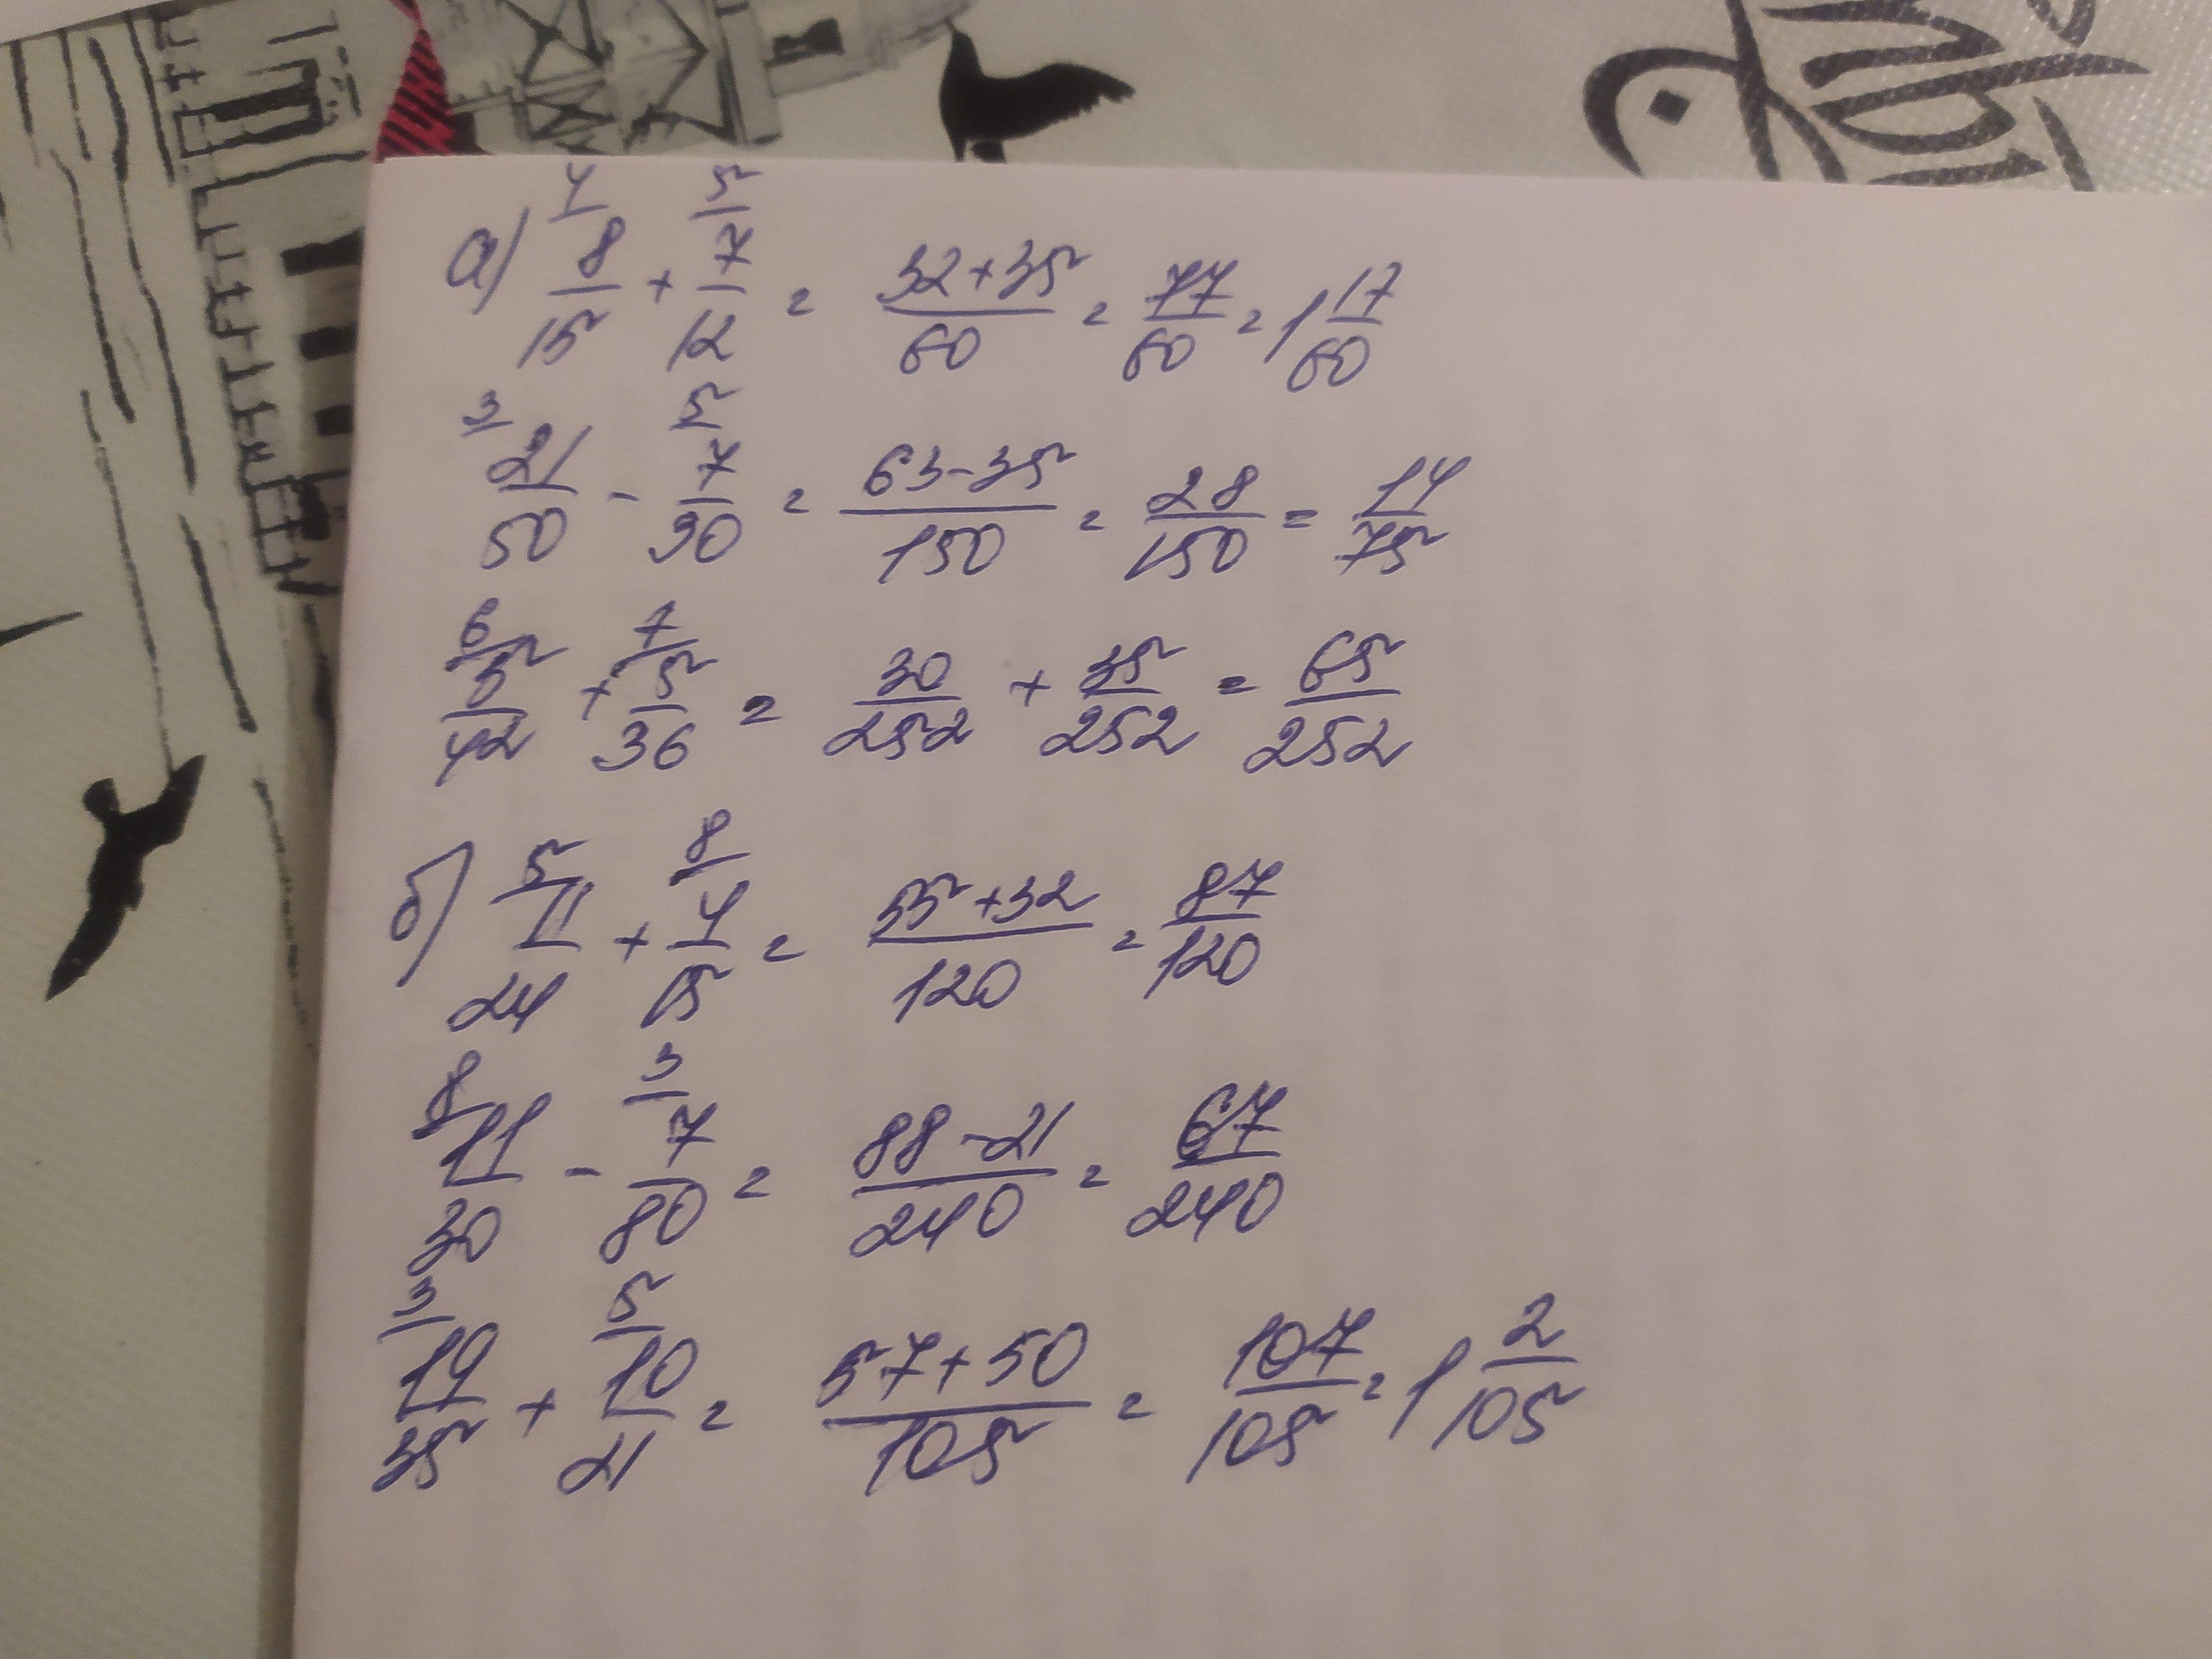 а) 4/ 8/15 + 5/ 7/12 = 32+35/60 = 77/60 = 1 17/60
3/ 21/50 - 5/ 7/30 = 63-35/150 = 28/150 = 14/75
6/ 5/42 + 7/ 5/36 = 30/252 + 35/252 = 65/252
б) 5/ 11/24 + 8/ 4/15 = 55+32/120 = 87/120
8/ 11/30 - 3/ 7/80 = 88-21/240 = 67/240
3/ 19/35 + 5/ 10/21 = 57+50/105 = 107/105 = 1 2/105